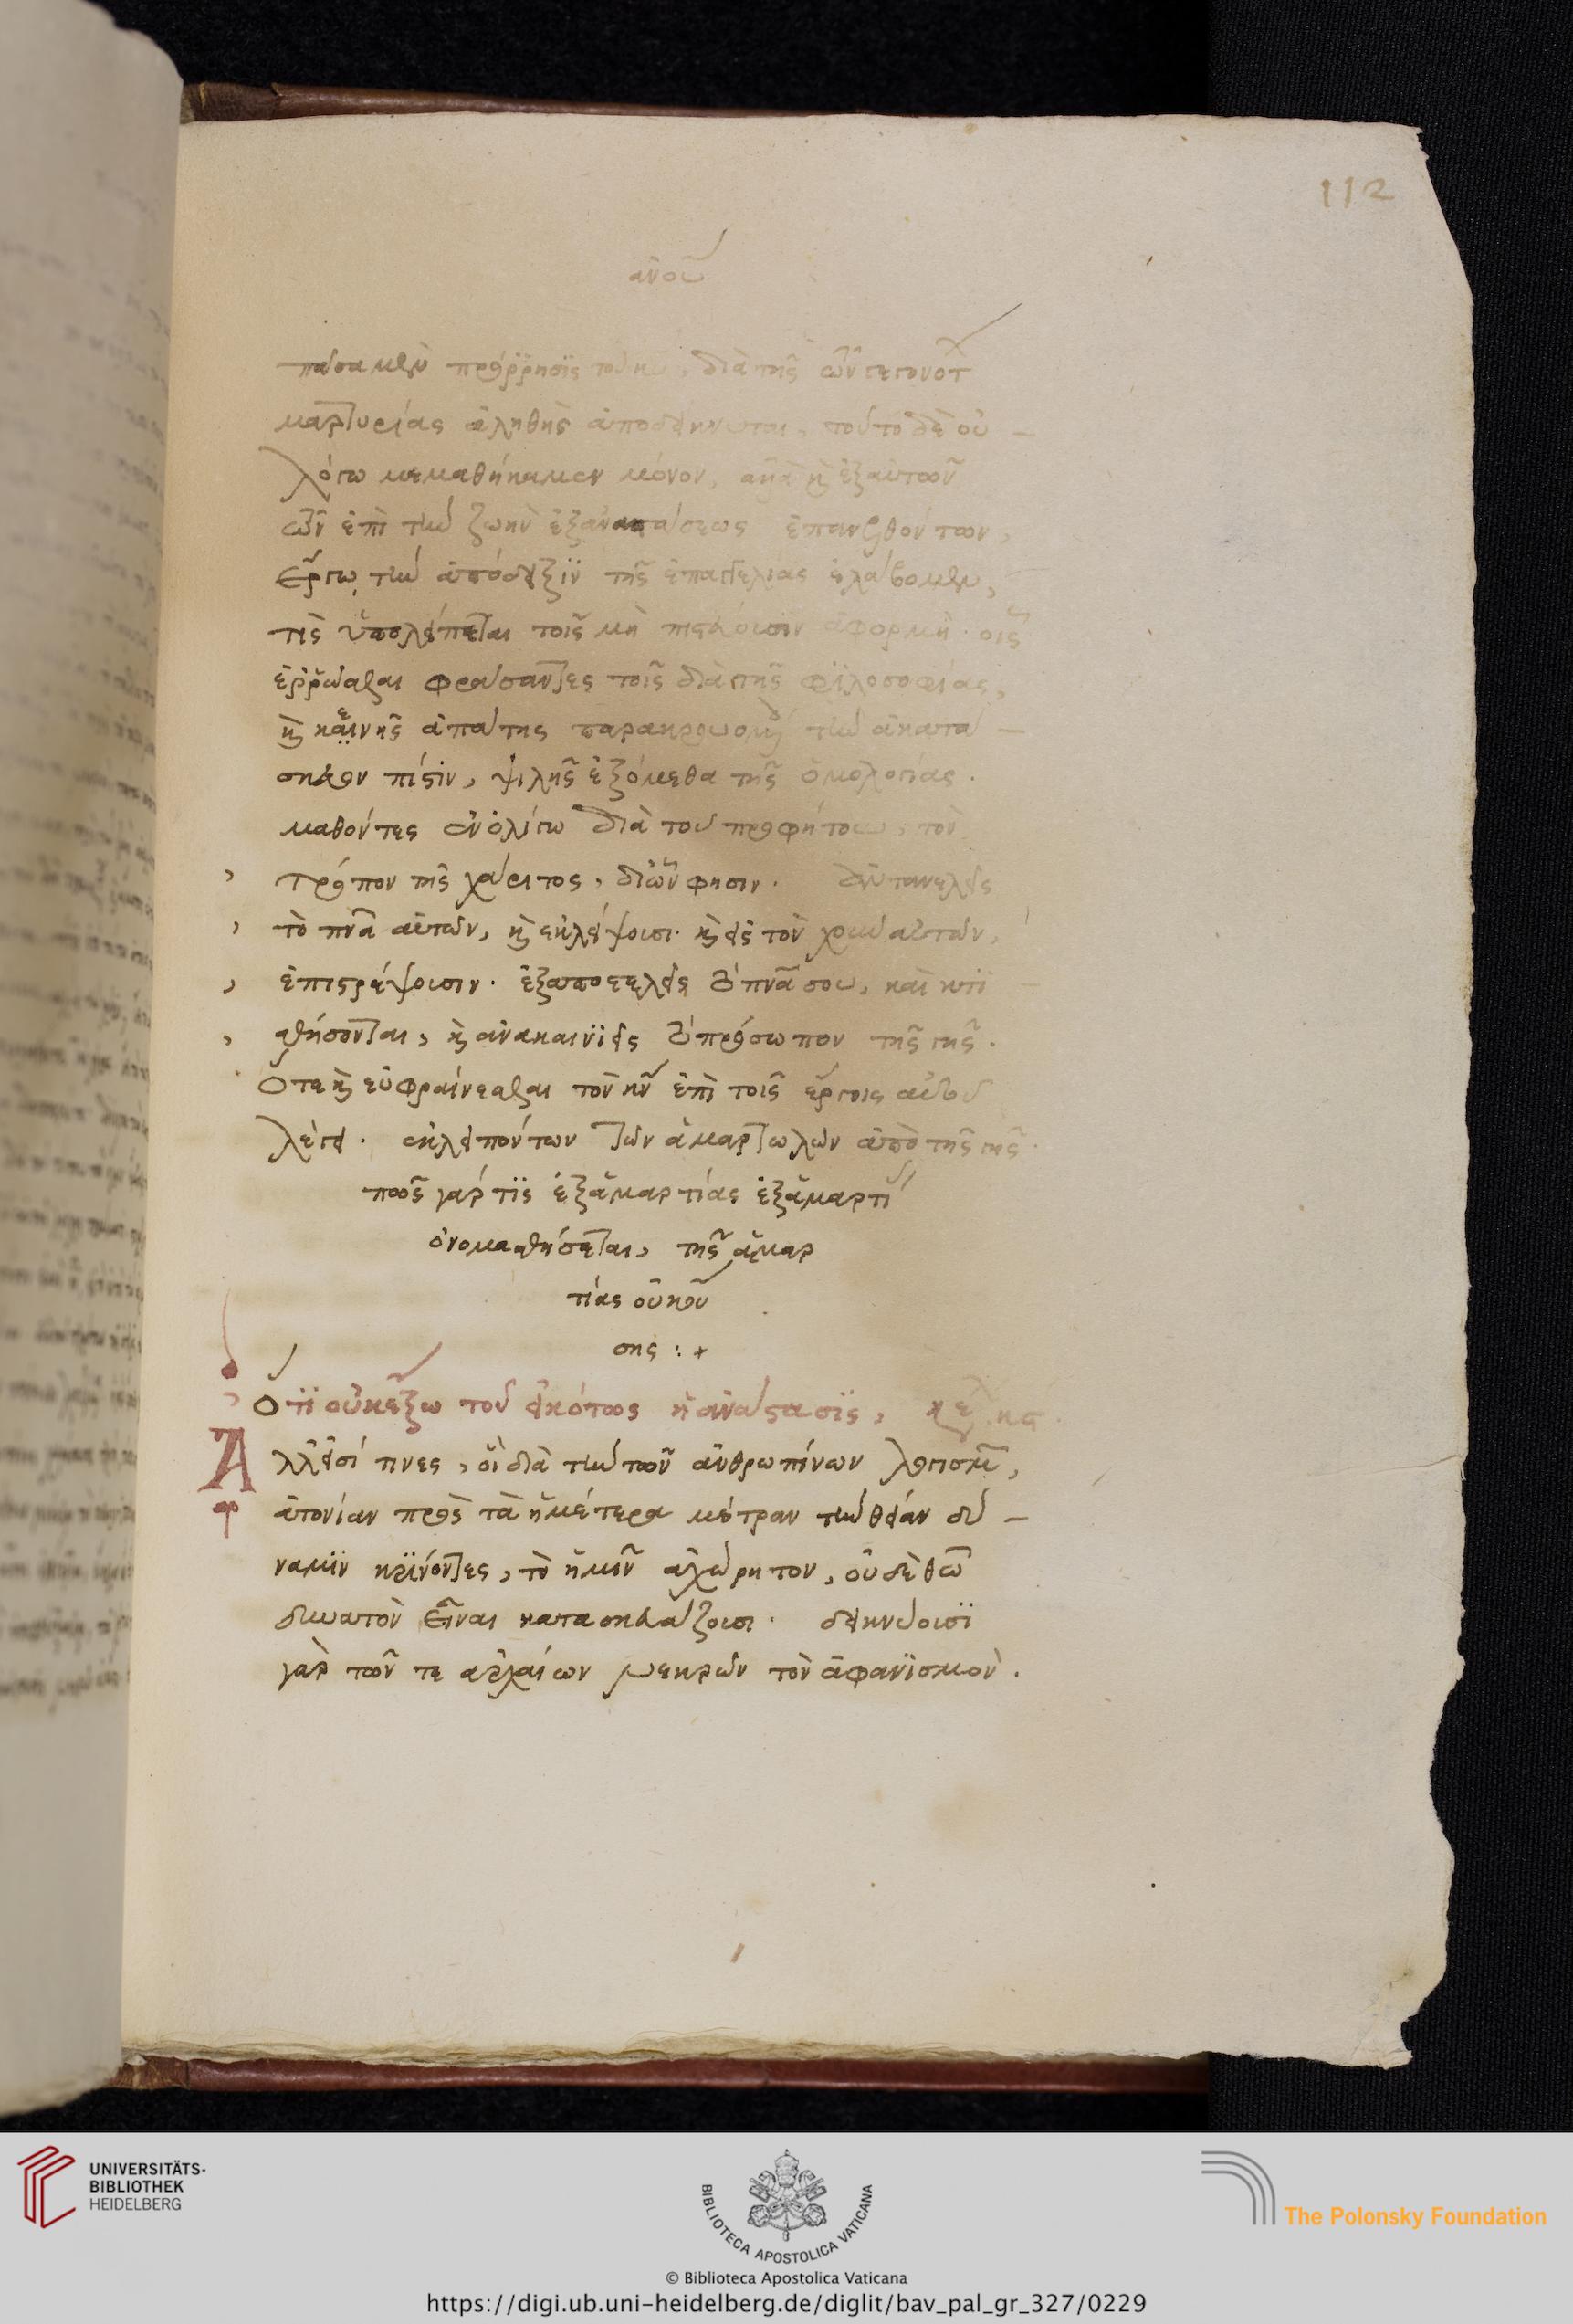 112
ἀνοῦ
πᾶσα μὲν πρόρρησις τοῦ κυ, διὰ τῆς ὧν γεγονότ
μαρτυρίας ἀληθὴς ἀποδείκνυται, τοῦτο δὲ οὐ –
λόγω μεμαθήκαμεν μόνον, ἀλλὰ κ ἐξ αὐτῶν
ὧν ἐπὶ τὴν ζωὴν ἐξ ἀναστάσεως ἐπανελθόντων,
ἔργω τὴν ἀπόδειξϊν τῆς ἐπαγγελίας ἐλάβομεν,
τίς ὑπολείπεται τοῖς μὴ πιστεύουσιν ἀφορμὴ. οὐχ
ἐρρῶσθαι φράσαντες τοῖς διὰ τῆς φϊλοσοφίας,
κ κενῆς ἀπάτης παρακρουομένοις τὴν ἀκατά –
σκευον πίστιν, ψιλῆς ἑξόμεθα τῆς ὁμολογίας.
μαθόντες ἐν ὀλίγω διὰ τοῦ προφήτου, τὸν
τρόπον τῆς χάριτος, δι ὧν φησιν. ἀντανελεῖς
τὸ πνα αὐτῶν, κ ἐκλείψουσι. κ εἰς τὸν χοῦν αὐτῶν,
ἐπιστρέψουσιν. ἐξαποστελεῖς τὸ πνα σου, καὶ κτϊ –
σθήσονται, κ ἀνακαινϊεῖς τὸ πρόσωπον τῆς γῆς.
Ὅτε κ εὐφραίνεσθαι τὸν κν ἐπὶ τοῖς ἔργοις αὐτοῦ
λέγει. ἐκλειπόντων τῶν ἁμαρτωλῶν ἀπὸ τῆς γῆς.
πῶς γάρ τϊς ἐξ ἁμαρτίας ἐξ ἁμαρτί
ὀνομασθήσεται, τῆς ἁμαρ
τίας οὐκ οὔ
σης : +
Ὅτϊ οὐκ ἔξω τοῦ εἰκότος ἡ ἀνάστασϊς,
Ἀλλ εἰσί τινες, οἳ διὰ τὴν τῶν ἀνθρωπίνων λογισμ,
ἀτονίαν πρὸς τὰ ἡμέτερα μέτρα τὴν θείαν δύ –
ναμϊν κρίνοντες, τὸ ἡμῖν ἀχώρητον, οὐδὲ θω
δυνατὸν εἶναι κατασκευάζουσι. δεικνύουσϊ
γὰρ τῶν τε ἀρχαίων νεκρῶν τὸν ἀφανϊσμὸν.
UNIVERSITÄTS-
BIBLIOTHEK
HEIDELBERG
BIBLIOTECA APOSTOLICA VATICANA
The Polonsky Foundation
© Biblioteca Apostolica Vaticana
https://digi.ub.uni-heidelberg.de/diglit/bav_pal_gr_327/0229